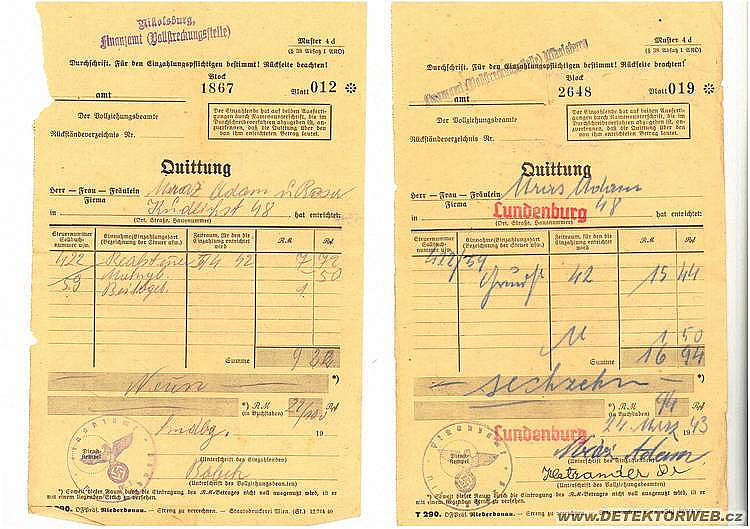 Nikolsburg,
Finanzamt (Vollstreckungsstelle)
Muster 4 d
(§ 38 Absatz 1 ARO)
Durchschrift. Für den Einzahlungspflichtigen bestimmt! Rückseite beachten!
Block
amt 1867 Blatt 012 *
Der Vollziehungsbeamte
Rückständeverzeichnis Nr.
Der Einzahlende hat auf beiden Ausferti-
gungen durch Namensunterschrift, die im
Durchschreibeverfahren abzugeben ist, an-
zuerkennen, daß die Quittung über den
von ihm entrichteten Betrag lautet.
Quittung
Herr – Frau – Fräulein Adam u
Firma
in 48 hat entrichtet:
(Ort, Straße, Hausnummer)
Steuernummer
Sollbuch-
nummer usw.
Einnahme/Einzahlungsart
(Bezeichnung der Steuer usw.)
Zeitraum, für den die
Einzahlung entrichtet
wird
R.M
Rpf
42
50
1.
Summe 9
Neun *)
*) R.M Rpf
(in Buchstaben)
19
Dienst-
stempel
(Unterschrift des Einzahlenden)
(Unterschrift des Vollziehungsbeamten)
*) Soweit dieser Raum durch die Eintragung des R.M-Betrages nicht voll ausgenutzt wird, ist er
mit einem liegenden Strich auszufüllen.
290. OFPräs. Niederdonau. — Streng zu verrechnen. — Staatsdruckerei Wien. (St.) 12.714 40
Finanzamt (Vollstreckungsstelle) Nikolsburg
Muster 4 d
(§ 38 Absatz 1 ARO)
Durchschrift. Für den Einzahlungspflichtigen bestimmt! Rückseite beachten!
Block
amt 2648 Blatt 019 *
Der Vollziehungsbeamte
Rückständeverzeichnis Nr.
Der Einzahlende hat auf beiden Ausferti-
gungen durch Namensunterschrift, die im
Durchschreibeverfahren abzugeben ist, an-
zuerkennen, daß die Quittung über den
von ihm entrichteten Betrag lautet.
Quittung
Herr – Frau – Fräulein Adam
Firma
in Lundenburg 48 hat entrichtet:
(Ort, Straße, Hausnummer)
Steuernummer
Sollbuch-
nummer usw.
Einnahme/Einzahlungsart
(Bezeichnung der Steuer usw.)
Zeitraum, für den die
Einzahlung entrichtet
wird
R.M
Rpf
42 15 44
1 50
Summe 16 94
sechzehn *)
*) R.M 94 Rpf
(in Buchstaben)
Lundenburg 24. März 1943
Adam
Dienst-
stempel
(Unterschrift des Einzahlenden)
(Unterschrift des Vollziehungsbeamten)
*) Soweit dieser Raum durch die Eintragung des R.M-Betrages nicht voll ausgenutzt wird, ist er
mit einem liegenden Strich auszufüllen.
T 290. OFPräs. Niederdonau. — Streng zu verrechnen. — Staatsdruckerei Wien. (St.)
www.DETEKTORWEB.cz